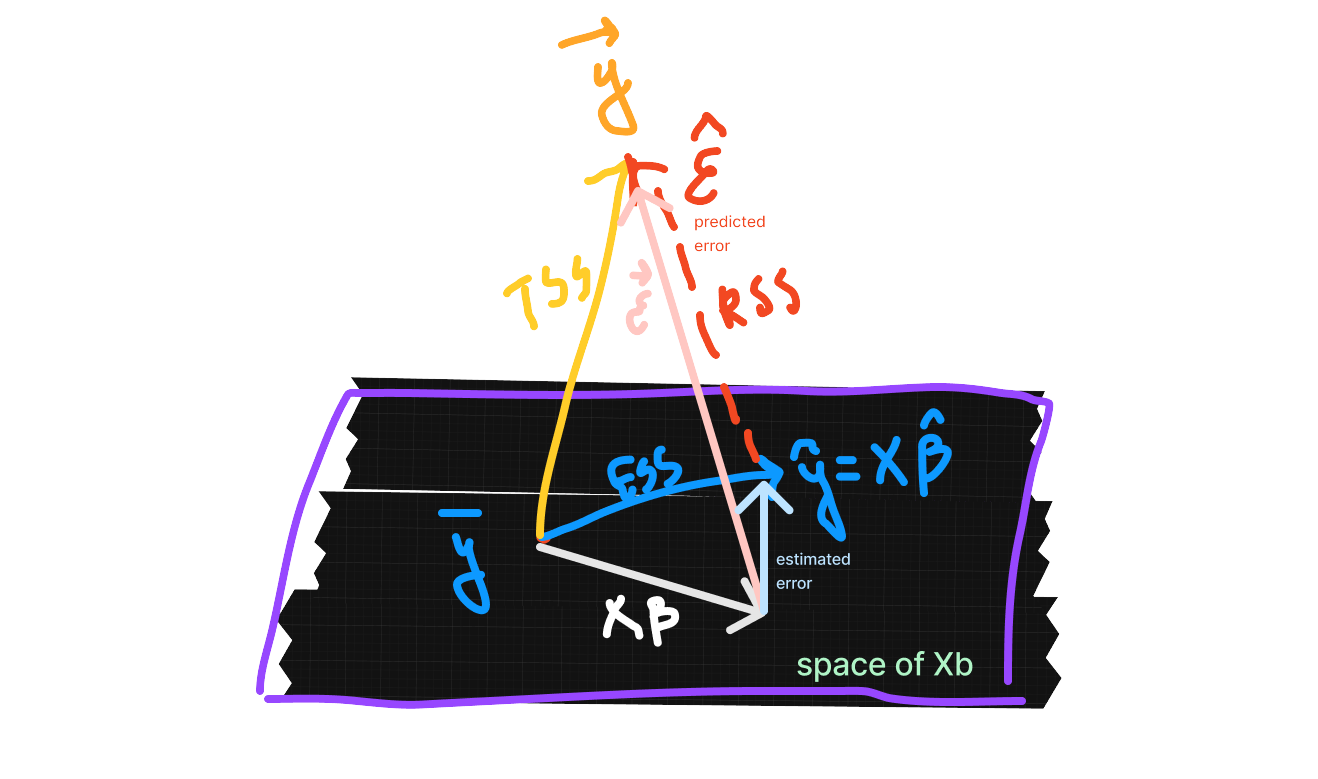 y⃗
ε̂
predicted
error
TSS
ε⃗
RSS
ESS
ŷ = Xβ̂
ȳ
estimated
error
Xβ
space of Xb